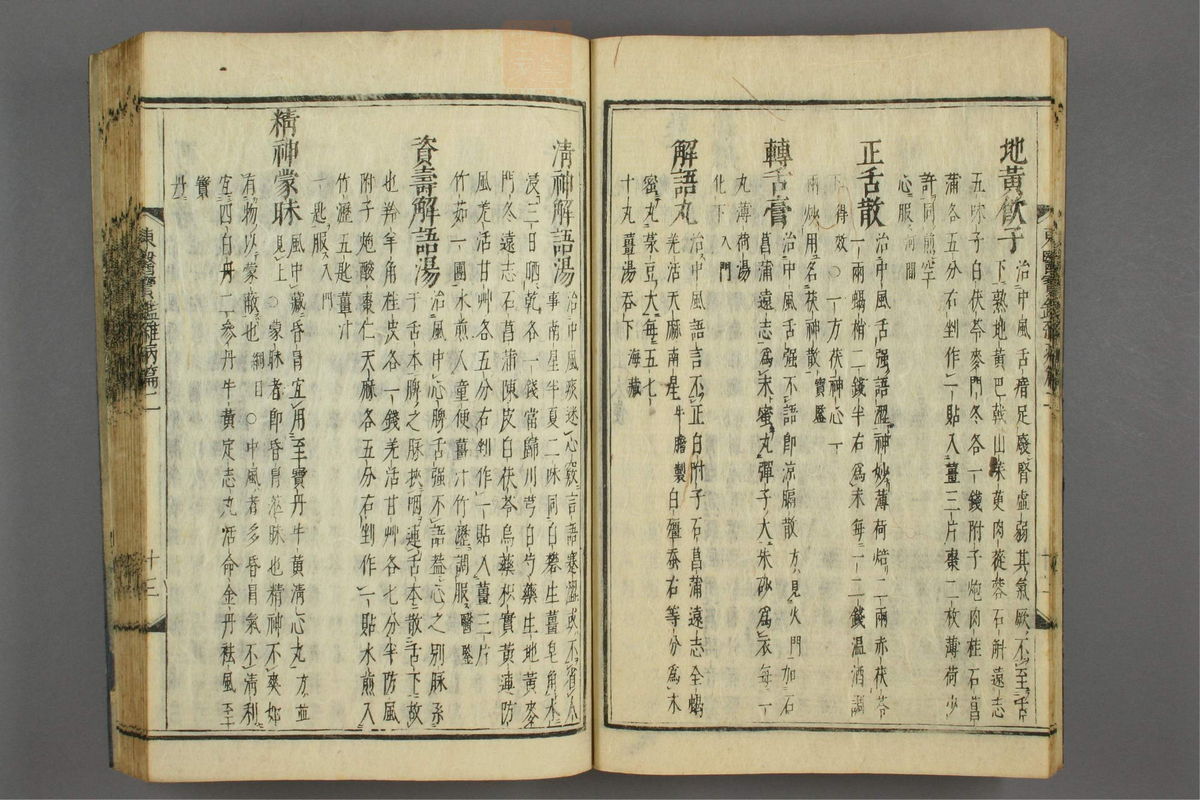 地黃飮子
治中風舌瘖足廢腎虛弱其氣厥不至舌
下熟地黃巴戟山茱萸肉蓯蓉石斛遠志
五味子白茯苓麥門冬各一錢附子炮肉桂石菖
蒲各五分右剉作一貼入薑三片棗二枚薄荷少
許同煎空
心服河間
正舌散
治中風舌强語澁神妙薄荷焙二兩赤茯苓
一兩蝎梢二錢半右爲末每一二錢溫酒調
下得效○一方茯神心一
兩炒用名茯神散寶鑑
轉舌膏
治中風舌强不語卽凉膈散方見火門加石
菖蒲遠志爲末蜜丸彈子大朱砂爲衣每一
丸薄荷湯
化下入門
解語丸
治中風語言不正白附子石菖蒲遠志全蝎
羌活天麻南星牛膽製白殭蚕右等分爲末
蜜丸菉豆大每五七
十丸薑湯吞下海藏
淸神解語湯
治中風痰迷心竅言語蹇澁或不省人
事南星半夏二味同白礬生薑皂角水
浸三日晒乾各一錢當歸川芎白芍藥生地黃麥
門冬遠志石菖蒲陳皮白茯苓烏藥枳實黃連防
風羌活甘艸各五分右剉作一貼入薑三片
竹茹一團水煎入童便薑汁竹瀝調服醫鑒
資壽解語湯
治風中心脾舌强不語蓋心之別脉系
于舌本脾之脉挾咽連舌本散舌下故
也羚羊角桂皮各一錢羌活甘艸各七分半防風
附子炮酸棗仁天麻各五分右剉作一貼水煎入
竹瀝五匙薑汁
一匙服入門
精神蒙昧
風中藏昏冒宜用至寶丹牛黃淸心丸方並
見上○蒙昧者卽昏冒
也精神不爽如
有物以蒙蔽也綱目○中風者多昏冒氣不淸利
宜四白丹二參丹牛黃定志丸活命金丹祛風至
寶
丹
東醫寶鑑雜病篇二
十三